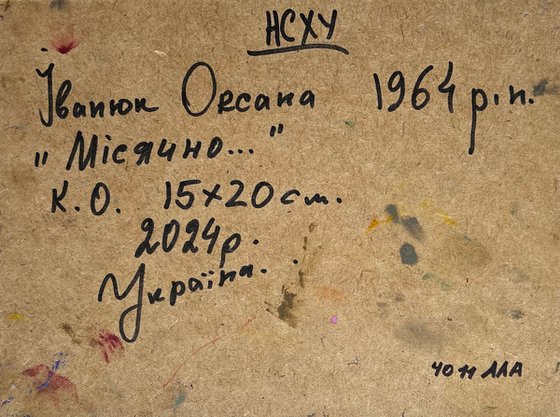 НСХУ
Іванюк Оксана 1964 р.н.
"Місячно..."
К.О. 15х20 см.
2024р.
Україна.